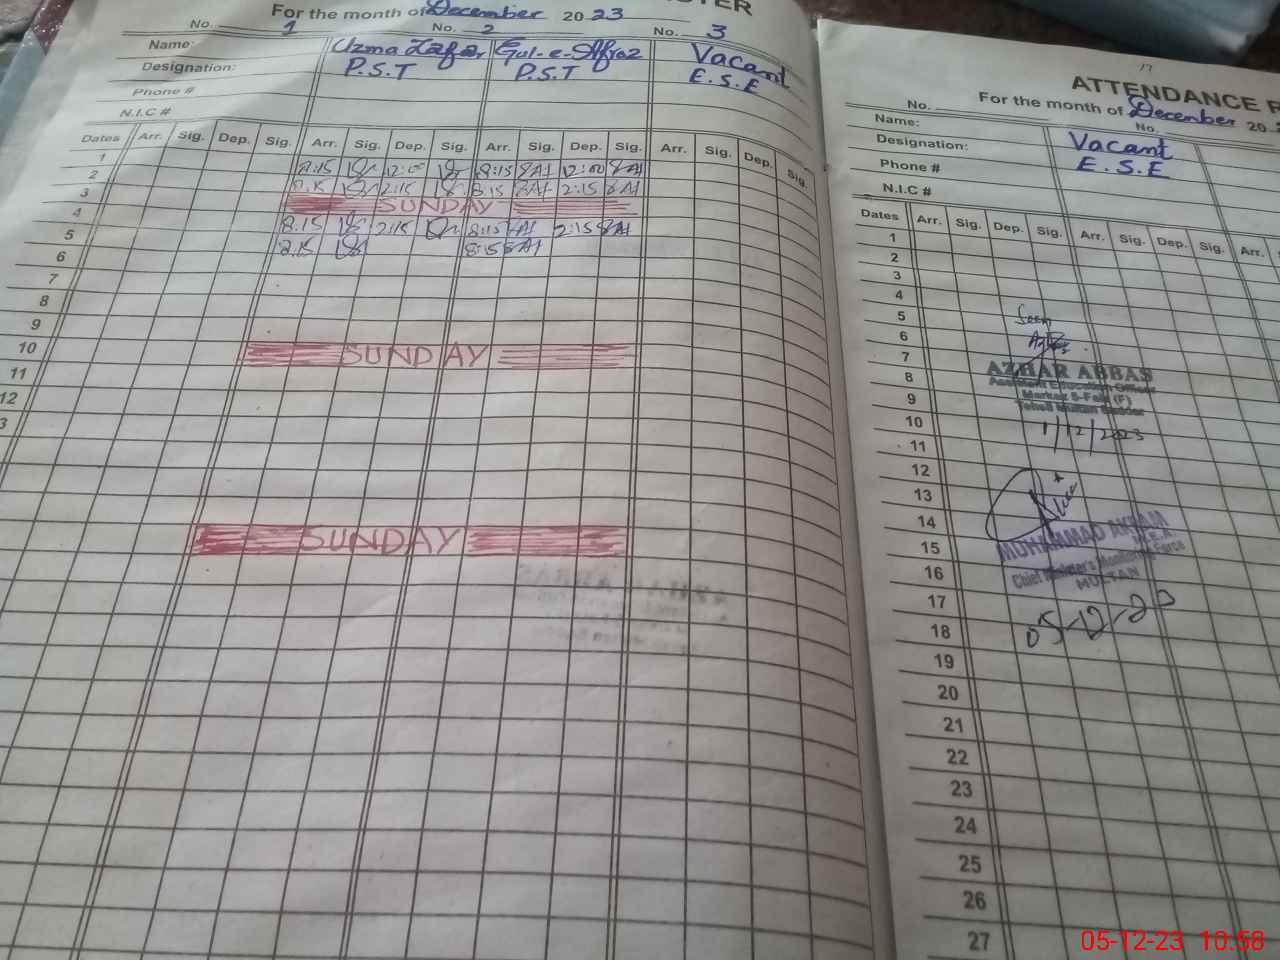 For the month of December 2023
No. 1 No. 2 No. 3
Name: Uzma Zafar Gul-e-Afroz Vacant
Designation: P.S.T P.S.T E.S.E
Phone #
N.I.C #
Dates Arr. Sig. Dep. Sig. Arr. Sig. Dep. Sig. Arr. Sig. Dep. Sig. Arr. Sig. Dep. Sig.
1 8:15 12:00 8:15 12:00
2 8:15 2:15 8:15 2:15
3 SUNDAY
4 8.15 2:15 8:15 2:15
5 8.15
6
7
8
9
10 SUNDAY
11
12
SUNDAY
ATTENDANCE
For the month of December 20
No. No.
Name: Vacant
Designation: E.S.E
Phone #
N.I.C #
Dates Arr. Sig. Dep. Sig. Arr. Sig. Dep. Sig. Arr.
1
2
3
4
5 Seen
6
7 AZHAR ABBAS
8 Assistant Education Officer
9 Markaz (F)
10 Tehsil Multan Sadder
11 1/12/2023
12
13
14 MUHAMMAD AKRAM
15 M.E.A
16 Chief Minister's Monitoring Force
MULTAN
17
18 05-12-23
19
20
21
22
23
24
25
26
27
05-12-23 10:58